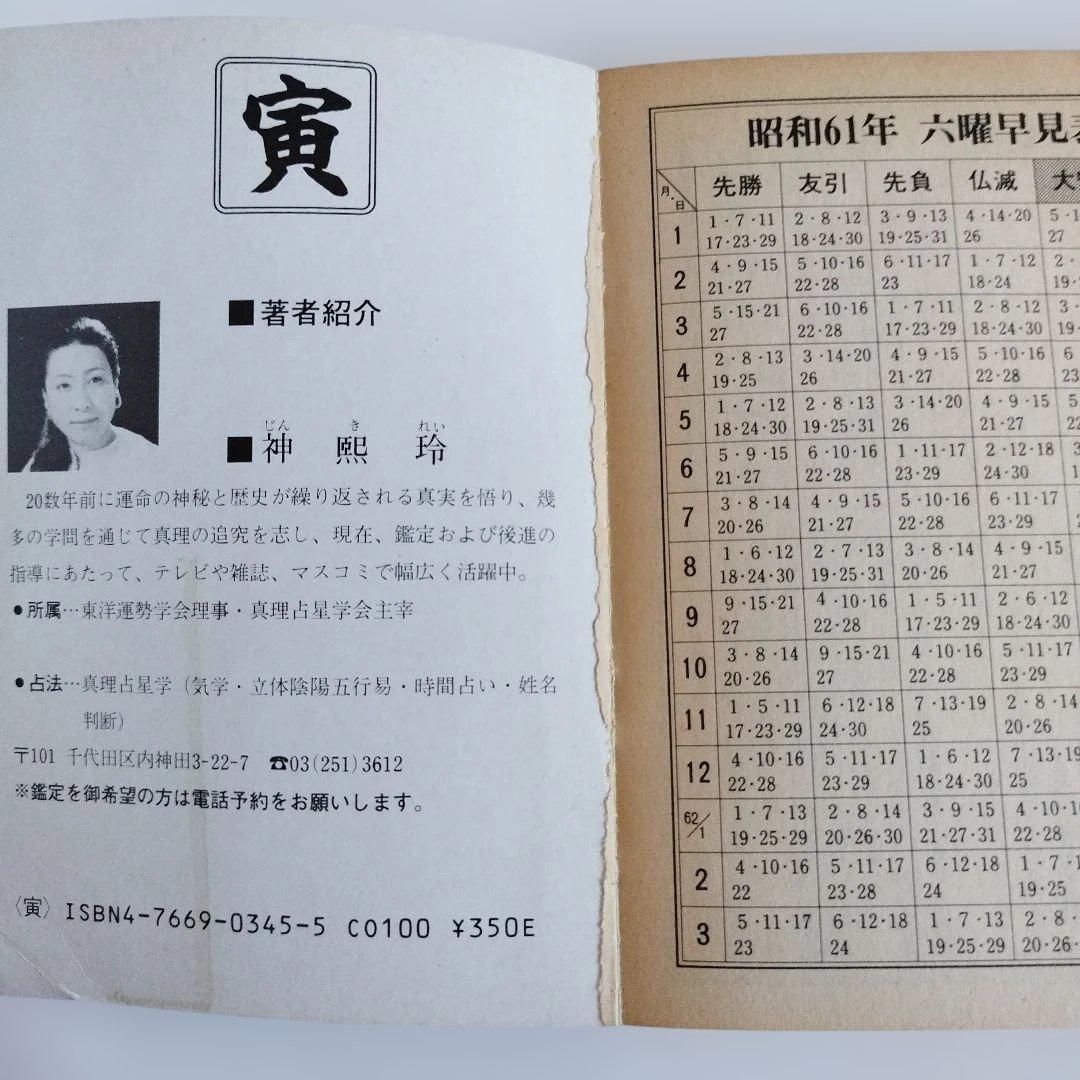 寅
■著者紹介
じん き れい
■神 熙 玲
20数年前に運命の神秘と歴史が繰り返される真実を悟り、幾
多の学問を通じて真理の追究を志し、現在、鑑定および後進の
指導にあたって、テレビや雑誌、マスコミで幅広く活躍中。
●所属…東洋運勢学会理事・真理占星学会主宰
●占法…真理占星学（気学・立体陰陽五行易・時間占い・姓名
判断）
〒101 千代田区内神田3-22-7 ☎03(251)3612
※鑑定を御希望の方は電話予約をお願いします。
〈寅〉ISBN4-7669-0345-5 C0100 ¥350E
昭和61年 六曜早見
月・日 先勝 友引 先負 仏滅 大
1 1・7・11 2・8・12 3・9・13 4・14・20
17・23・29 18・24・30 19・25・31 26 27
2 4・9・15 5・10・16 6・11・17 1・7・12 2・
21・27 22・28 23 18・24 19・
3 5・15・21 6・10・16 1・7・11 2・8・12 3・
27 22・28 17・23・29 18・24・30
4 2・8・13 3・14・20 4・9・15 5・10・16 6
19・25 26 21・27 22・28 23
5 1・7・12 2・8・13 3・14・20 4・9・15
18・24・30 19・25・31 26 21・27
6 5・9・15 6・10・16 1・11・17 2・12・18
21・27 22・28 23・29 24・30
7 3・8・14 4・9・15 5・10・16 6・11・17
20・26 21・27 22・28 23・29
8 1・6・12 2・7・13 3・8・14 4・9・15
18・24・30 19・25・31 20・26 21・27
9 9・15・21 4・10・16 1・5・11 2・6・12
27 22・28 17・23・29 18・24・30
10 3・8・14 9・15・21 4・10・16 5・11・17
20・26 27 22・28 23・29
11 1・5・11 6・12・18 7・13・19 2・8・14
17・23・29 24・30 25 20・26
12 4・10・16 5・11・17 1・6・12 7・13・19
22・28 23・29 18・24・30 25
62/1 1・7・13 2・8・14 3・9・15 4・10・
19・25・29 20・26・30 21・27・31 22・28
2 4・10・16 5・11・17 6・12・18 1・7・
22 23・28 24 19・25
3 5・11・17 6・12・18 1・7・13 2・8・
23 24 19・25・29 20・26・